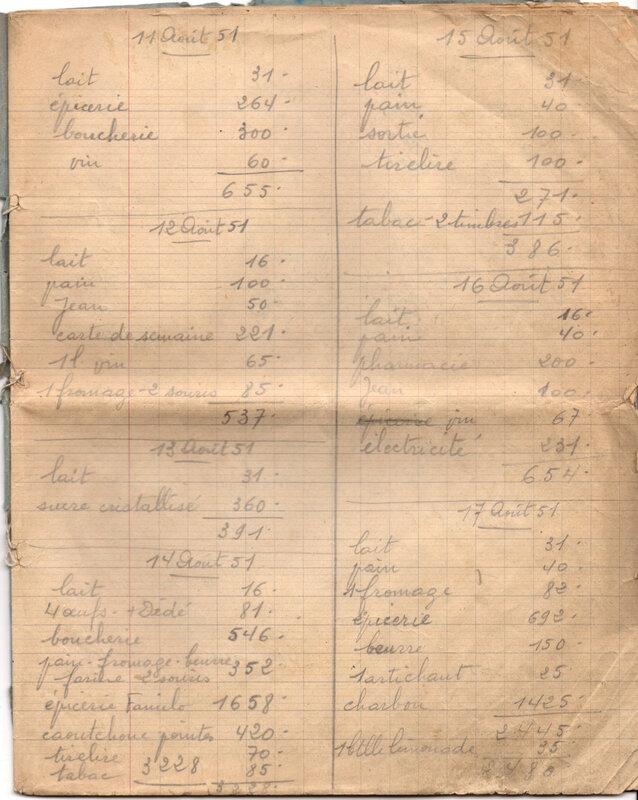 11 Août 51
lait 31-
épicerie 264-
boucherie 300-
vin 60-
655-
12 Août 51
lait 16-
pain 100-
Jean 50-
carte de semaine 221-
1 l vin 65-
1 fromage - 2 souris 85-
537-
13 Août 51
lait 31-
sucre cristallisé 360-
391-
14 Août 51
lait 16-
4 œufs - + Dédé 81-
boucherie 546-
pain - fromage - beurre 352
farine 2 souris
épicerie Familo 1658-
caoutchouc pointes 420-
tirelire 70-
tabac 3228 85-
3228-
15 Août 51
lait 31-
pain 40-
sortie 100-
tirelire 100-
271-
tabac - 2 timbres 115-
386-
16 Août 51
lait 16-
pain 40-
pharmacie 200-
Jean 100-
épicerie vin 67
électricité 231-
654-
17 Août 51
lait 31-
pain 40-
1 fromage 82-
épicerie 692-
beurre 150-
1 artichaut 25-
charbon 1425-
2445-
1 btlle limonade 35-
2480